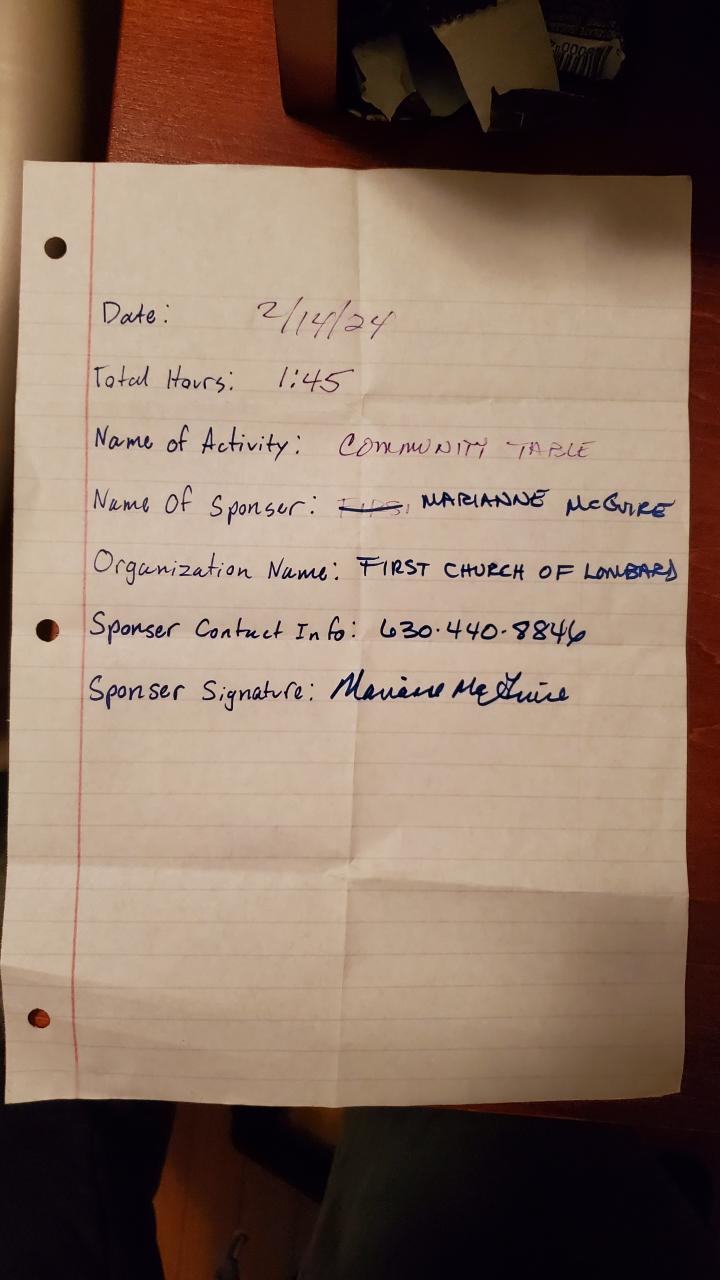 Date: 2/14/24
Total Hours: 1:45
Name of Activity: COMMUNITY TABLE
Name Of Sponser: MARIANNE McGUIRE
Organization Name: FIRST CHURCH OF LOMBARD
Sponser Contact Info: 630.440.8846
Sponser Signature: Marianne McGuire